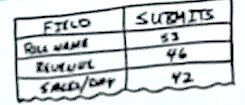 FIELD SUBMITS
ROLE NAME 53
REVENUE 46
SALES/DAY 42